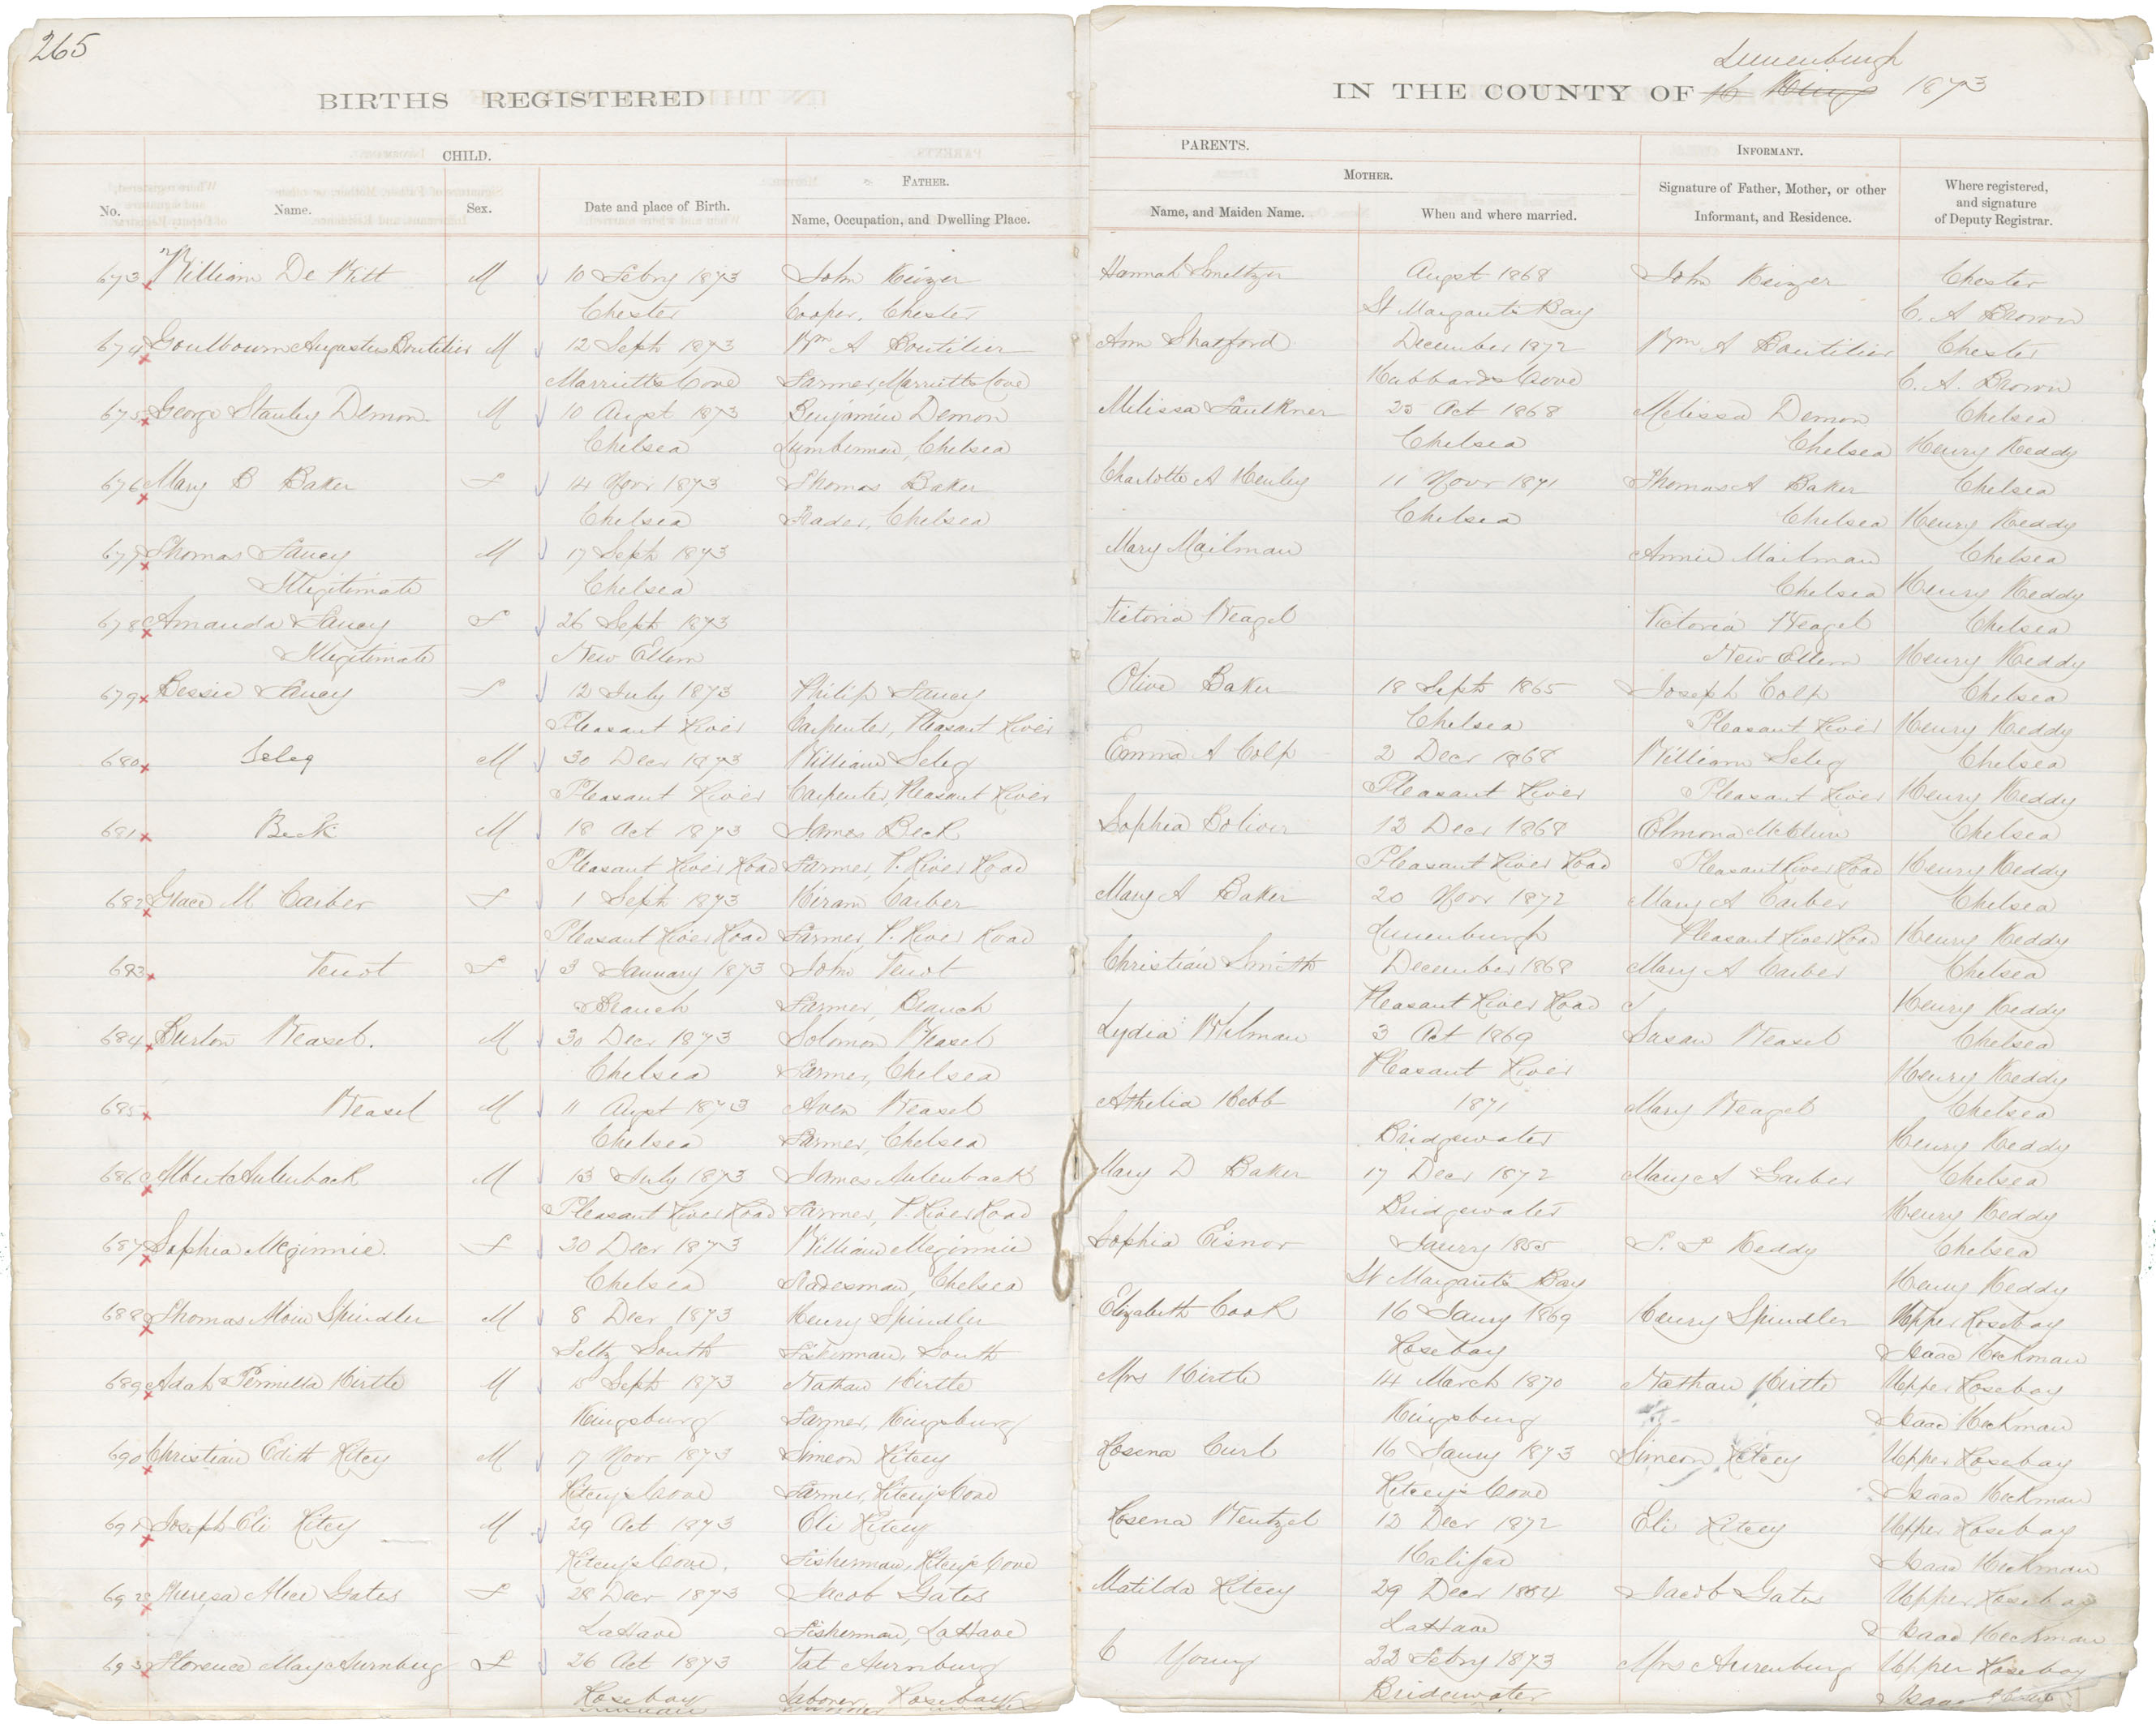 265
BIRTHS REGISTERED
IN THE COUNTY OF Lunenburgh 1873
CHILD.
PARENTS.
INFORMANT.
FATHER.
MOTHER.
No. Name. Sex. Date and place of Birth. Name, Occupation, and Dwelling Place. Name, and Maiden Name. When and where married. Signature of Father, Mother, or other Informant, and Residence. Where registered, and signature of Deputy Registrar.
673 William De Witt M 10 Febry 1873 John Keizer Hannah Smeltzer Augst 1868 John Keizer Chester
Chester Cooper, Chester St Margarets Bay C. A Brown
674 Goulbourn Augustus Boutilier M 12 Sept 1873 Wm A Boutilier Ann Shatford December 1872 Wm A Boutilier Chester
Marriotts Cove Farmer, Marriotts Cove Hubbards Cove C. A. Brown
675 George Stanley Demon M 10 Augst 1873 Benjamin Demon Melissa Faulkner 25 Oct 1868 Melissa Demon Chelsea
Chelsea Lumberman, Chelsea Chelsea Chelsea Henry Keddy
676 Mary B Baker F 14 Novr 1873 Thomas Baker Charlotte A Henley 11 Novr 1871 Thomas A Baker Chelsea
Chelsea Trader, Chelsea Chelsea Chelsea Henry Keddy
677 Thomas Fancy M 17 Sept 1873 Mary Mailman Annie Mailman Chelsea
Illegitimate Chelsea Chelsea Henry Keddy
678 Amanda Fancy F 26 Sept 1873 Victoria Weagel Victoria Weagel Chelsea
Illegitimate New Ellem New Ellem Henry Keddy
679 Bessie Fancy F 12 July 1873 Philip Fancy Olive Baker 18 Sept 1865 Joseph Colp Chelsea
Pleasant River Carpenter, Pleasant River Chelsea Pleasant River Henry Keddy
680 Seleg M 30 Decr 1873 William Seleg Emma A Colp 2 Decr 1868 William Seleg Chelsea
Pleasant River Carpenter, Pleasant River Pleasant River Pleasant River Henry Keddy
681 Beck M 18 Oct 1873 James Beck Sophia Boliver 12 Decr 1868 Chelsea
Pleasant River Road Farmer, P. River Road Pleasant River Road Pleasant River Road Henry Keddy
682 Grace M Carber F 1 Sept 1873 Hiram Carber Mary A Baker 20 Novr 1872 Mary A Carber Chelsea
Pleasant River Road Farmer, P. River Road Lunenburgh Pleasant River Road Henry Keddy
683 Venot F 3 January 1873 John Venot Christian Smith December 1868 Mary A Carber Chelsea
Branch Farmer, Branch Pleasant River Road Henry Keddy
684 Burton Weasel. M 30 Decr 1873 Solomon Weasel Lydia Whilman 3 Oct 1869 Susan Weasel Chelsea
Chelsea Farmer, Chelsea Pleasant River Henry Keddy
685 Weasel M 11 Augst 1873 Aven Weasel Athelia Hebb 1871 Mary Weagel Chelsea
Chelsea Farmer, Chelsea Bridgewater Henry Keddy
686 Albert Aulenback M 13 July 1873 James Aulenback Mary D Baker 17 Decr 1872 Mary A Garber Chelsea
Pleasant River Road Farmer, P. River Road Bridgewater Henry Keddy
687 Sophia Mcginnie. F 30 Decr 1873 William Mcginnie Sophia Eisnor Janry 1855 S. F Keddy Chelsea
Chelsea Tradesman, Chelsea St Margarets Bay Henry Keddy
688 Thomas Spindler M 8 Decr 1873 Henry Spindler Elizabeth Cook 16 Janry 1869 Henry Spindler Upper Rosebay
Feltz South Fisherman, South Rosebay Isaac Heckman
689 Adah Permilla Hirtle M 15 Sept 1873 Nathan Hirtle Mrs Hirtle 14 March 1870 Nathan Hirtle Upper Rosebay
Kingsburg Farmer, Kingsburg Kingsburg Isaac Heckman
690 Christian Edith Ritcey M 17 Novr 1873 Simeon Ritcey Rosena Curl 16 Janry 1873 Simeon Ritcey Upper Rosebay
Ritcey's Cove Farmer, Ritcey's Cove Ritcey's Cove Isaac Heckman
691 Joseph Eli Ritcey M 29 Oct 1873 Eli Ritcey Rosena Wentzel 12 Decr 1872 Eli Ritcey Upper Rosebay
Ritcey's Cove. Fisherman, Ritcey's Cove Halifax Isaac Heckman
692 Theresa Alice Gates F 28 Decr 1873 Jacob Gates Matilda Ritcey 29 Decr 1854 Jacob Gates Upper Rosebay
LaHave Fisherman, LaHave LaHave Isaac Heckman
693 Florence May Aurnburg F 26 Oct 1873 Tat Aurnburg C Young 22 Febry 1873 Mrs Aurenburg Upper Rosebay
Rosebay Laborer, Rosebay Bridgewater Isaac